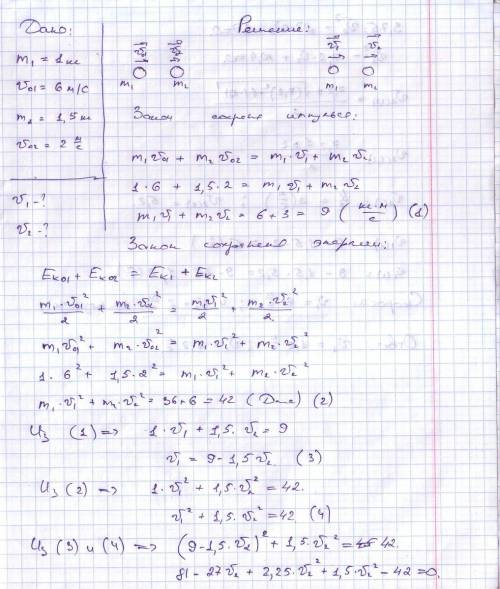 Дано:
m₁ = 1 кг
v₀₁ = 6 м/с
m₂ = 1,5 кг
v₀₂ = 2 м/с
v₁ - ?
v₂ - ?
Решение:
m₁ m₂ m₁ m₂
Закон сохрания импульса:
m₁v₀₁ + m₂v₀₂ = m₁·v₁ + m₂v₂
1·6 + 1,5·2 = m₁v₁ + m₂v₂
m₁v₁ + m₂v₂ = 6 + 3 = 9 (кг·м/с) (1)
Закон сохранения энергии:
Eк₀₁ + Eк₀₂ = Eк₁ + Eк₂
m₁·v₀₁²/2 + m₂·v₀₂²/2 = m₁v₁²/2 + m₂·v₂²/2
m₁v₀₁² + m₂·v₀₂² = m₁·v₁² + m₂·v₂²
1·6² + 1,5·2² = m₁·v₁² + m₂·v₂²
m₁·v₁² + m₂·v₂² = 36 + 6 = 42 (Дж) (2)
Из (1) => 1·v₁ + 1,5·v₂ = 9
v₁ = 9 - 1,5v₂ (3)
Из (2) => 1·v₁² + 1,5·v₂² = 42
v₁² + 1,5·v₂² = 42 (4)
Из (3) и (4) => (9-1,5·v₂)² + 1,5·v₂² = 42.
81 - 27v₂ + 2,25·v₂² + 1,5·v₂² - 42 = 0.